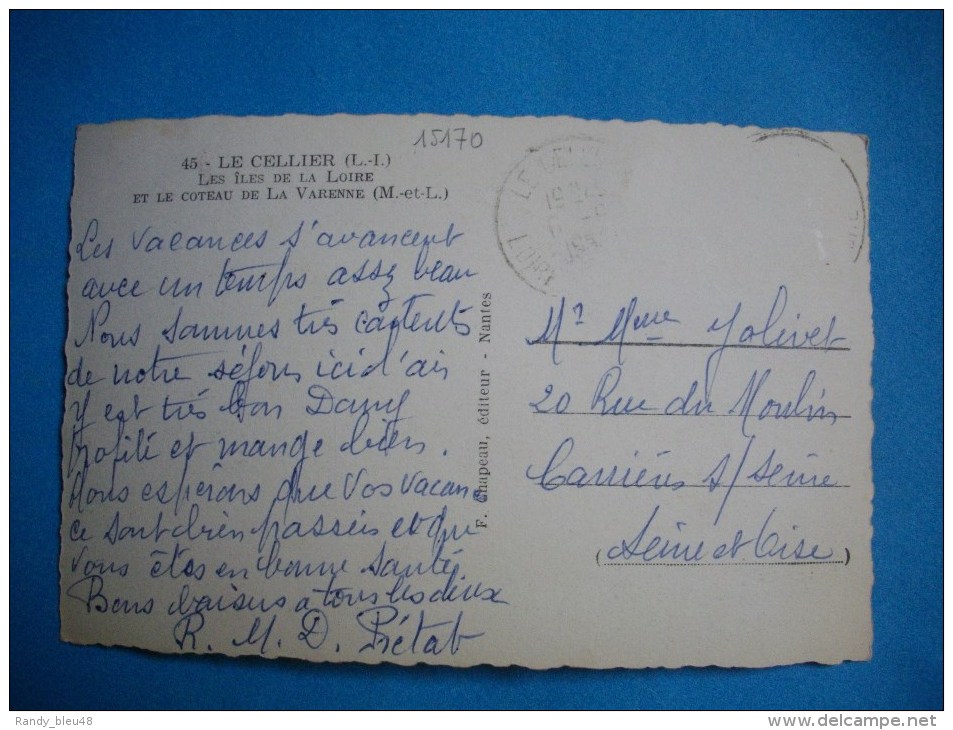 15170
45 - LE CELLIER (L.-I.)
LES ÎLES DE LA LOIRE
ET LE COTEAU DE LA VARENNE (M.-et-L.)
Les vacances s'avancent
avec un temps assez beau
Nous sommes très contents
de notre séjour ici l'air
y est très bon Dany
profite et mange bien.
Nous espérons que vos vacan
ce sont bien passées et que
vous êtes en bonne santé
Bons baisers à tous les deux
R. M. D. Piétab
F. Chapeau, éditeur - Nantes
LOIRE
Mr Mme Jolivet
20 Rue du Moulin
Carrières s/ Seine
(Seine et Oise)
Randy_bleu48
www.delcampe.net